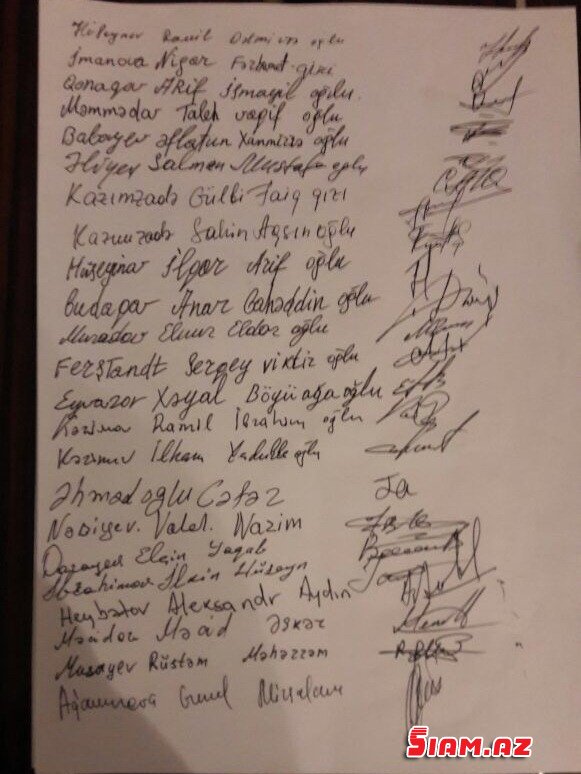 Hüseynov Ramil oğlu
İmanova Nigar Fərhand qızı
Qonaqov Arif İsmayıl oğlu.
Məmmədov Taleh vaqif oğlu
Babayev əflatun Xanmirzə oğlu
Əliyev Salman Mustafa oğlu
Kazımzadə Gülbi Faiq qızı
Kazımzadə Şahin Aqşın oğlu
Hüseyinov İlqar Arif oğlu
Budaqov Anar Bahəddin oğlu
Muradov Elnur Eldar oğlu
FerşTandt Sergey viktir oğlu
Eyvazov Xəyal Böyüağa oğlu
Kazimov Ramil İbrahim oğlu
Kazimov İlham Yadulla oğlu
Əhmədoğlu Cəfər
Nəbiyev. Valeh. Nazim
Elçin Yaqub
İbrahimov İlkin Hüseyn
Heybətov Aleksandr Aydın
Məcidov Məcid Əskər
Musayev Rüstəm Məhərrəm
SİAM.AZ